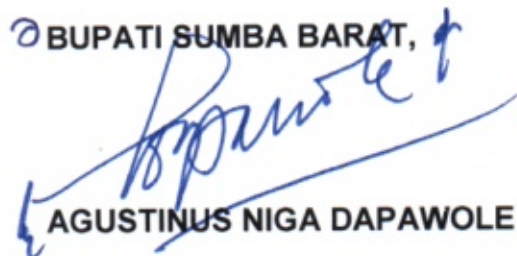 BUPATI SUMBA BARAT,
AGUSTINUS NIGA DAPAWOLE